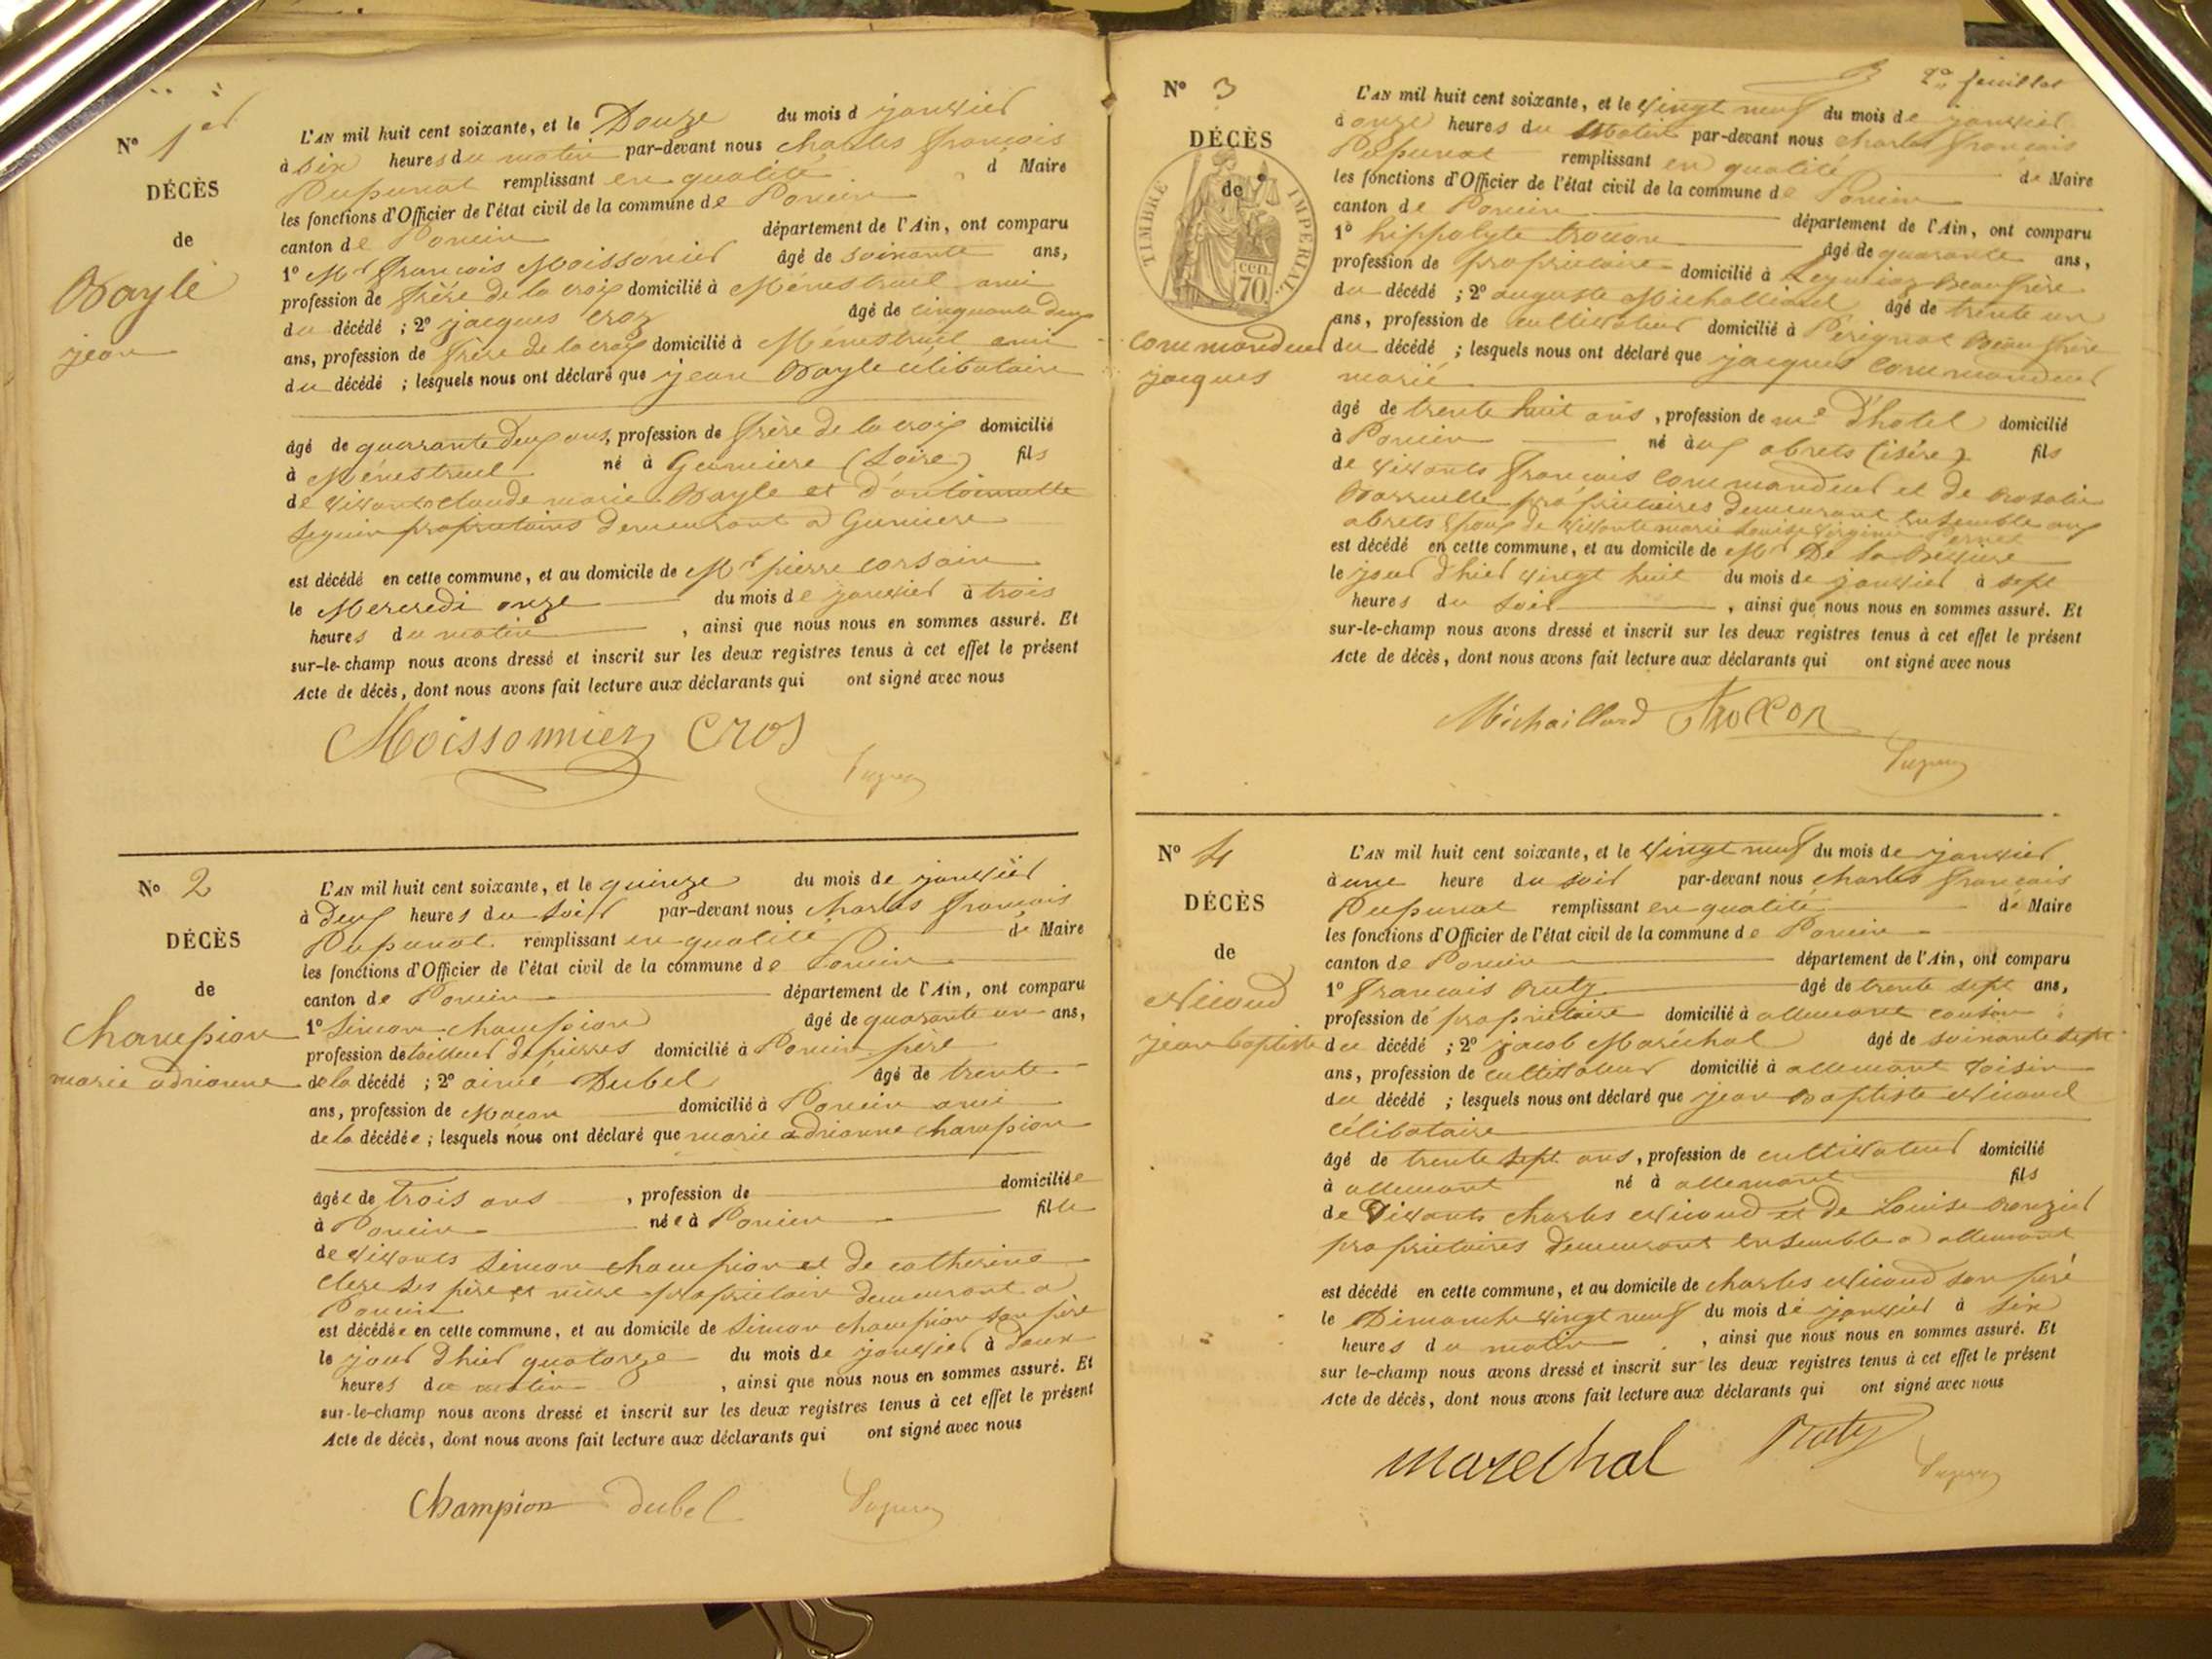 N° 1er
DÉCÈS
de
Bayle
jean
L'AN mil huit cent soixante, et le Douze du mois d janvier
à dix heures du matin par-devant nous charles françois
remplissant en qualité d Maire
les fonctions d'Officier de l'état civil de la commune de Poncin
canton de Poncin département de l'Ain, ont comparu
1° Mr françois Moissonier âgé de soixante ans,
profession de frère de la croix domicilié à Ménestruel ami
du décédé ; 2° jacques croz âgé de cinquante deux
ans, profession de frère de la croix domicilié à Ménestruel ami
du décédé ; lesquels nous ont déclaré que jean Bayle célibataire
âgé de quarante deux ans, profession de frère de la croix domicilié
à Ménestruel né à Gumiere (Loire) fils
de vivants claude marie Bayle et d'antoinette
seguin propriétaires demeurant a Gumiere
est décédé en cette commune, et au domicile de Mr pierre corsain
le Mercredi onze du mois de janvier à trois
heures du matin , ainsi que nous nous en sommes assuré. Et
sur-le-champ nous avons dressé et inscrit sur les deux registres tenus à cet effet le présent
Acte de décès, dont nous avons fait lecture aux déclarants qui ont signé avec nous
Moissonnier Cros
N° 2
DÉCÈS
de
champion
marie adrianne
L'AN mil huit cent soixante, et le quinze du mois de janvier
à deux heures du soir par-devant nous charles françois
remplissant en qualité de Maire
les fonctions d'Officier de l'état civil de la commune de Poncin
canton de Poncin département de l'Ain, ont comparu
1° simon champion âgé de quarante un ans,
profession de tailleur de pierres domicilié à Poncin père
de la décédé ; 2° aimé Dubel âgé de trente
ans, profession de Maçon domicilié à Poncin ami
de la décédée ; lesquels nous ont déclaré que marie adrianne champion
âgée de trois ans , profession de domiciliée
à Poncin née à Poncin fille
de vivants simon champion et de catherine
clerc ses père et mère propriétaire demeurant a
Poncin
est décédée en cette commune, et au domicile de simon champion son père
le jour d'hier quatorze du mois de janvier à deux
heures du matin , ainsi que nous nous en sommes assuré. Et
sur-le-champ nous avons dressé et inscrit sur les deux registres tenus à cet effet le présent
Acte de décès, dont nous avons fait lecture aux déclarants qui ont signé avec nous
Champion dubel
2e feuillet
N° 3
DÉCÈS
de
TIMBRE IMPERIAL
cen. 70
commandeur
jacques
L'AN mil huit cent soixante, et le vingt neuf du mois de janvier
à onze heures du matin par-devant nous charles françois
remplissant en qualité de Maire
les fonctions d'Officier de l'état civil de la commune de Poncin
canton de Poncin département de l'Ain, ont comparu
1° hippolyte trocon âgé de quarante ans,
profession de propriétaire domicilié à Leymiaz Beau frère
du décédé ; 2° auguste Michalliard âgé de trente un
ans, profession de cultivateur domicilié à Pérignat Beau frère
du décédé ; lesquels nous ont déclaré que jacques commandeur
marié
âgé de trente huit ans , profession de me d'hotel domicilié
à Poncin né aux abrets (isère) fils
de vivants françois commandeur et de Rosalie
propriétaires demeurant ensemble aux
abrets époux de vivante marie Louise virginie
est décédé en cette commune, et au domicile de Mr De la
le jour d'hier vingt huit du mois de janvier à sept
heures du soir , ainsi que nous nous en sommes assuré. Et
sur-le-champ nous avons dressé et inscrit sur les deux registres tenus à cet effet le présent
Acte de décès, dont nous avons fait lecture aux déclarants qui ont signé avec nous
Michaillard Trocon
N° 4
DÉCÈS
de
Nicoud
jean baptiste
L'AN mil huit cent soixante, et le vingt neuf du mois de janvier
à une heure du soir par-devant nous charles françois
remplissant en qualité de Maire
les fonctions d'Officier de l'état civil de la commune de Poncin
canton de Poncin département de l'Ain, ont comparu
1° françois Ruty âgé de trente sept ans,
profession de propriétaire domicilié à allement cousin
du décédé ; 2° jacob Maréchal âgé de soixante sept
ans, profession de cultivateur domicilié à allement voisin
du décédé ; lesquels nous ont déclaré que jean Baptiste Nicoud
célibataire
âgé de trente sept ans , profession de cultivateur domicilié
à allement né à allement fils
de vivants charles Nicoud et de Louise
propriétaires demeurant ensemble a allement
est décédé en cette commune, et au domicile de charles Nicoud son père
le Dimanche vingt neuf du mois de janvier à six
heures du matin , ainsi que nous nous en sommes assuré. Et
sur le-champ nous avons dressé et inscrit sur les deux registres tenus à cet effet le présent
Acte de décès, dont nous avons fait lecture aux déclarants qui ont signé avec nous
marechal Ruty